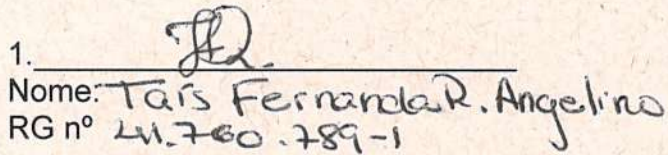 1.
Nome: Taís Fernanda R. Angelino
RG nº 41.760.789-1